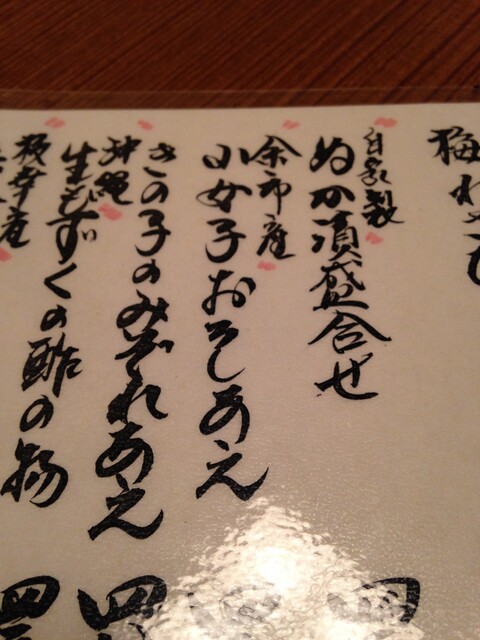 梅わさび
自家製
ぬか漬盛合せ
余市産
小女子おろしあえ
きの子のみぞれあえ
沖縄
生もずくの酢の物
四
四
四
四